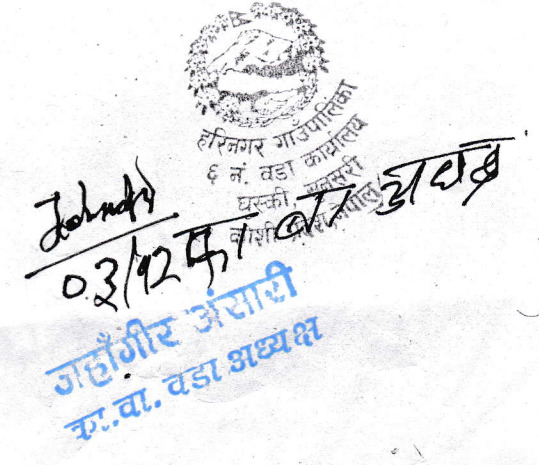 हरिनगर गाउँपालिका
६ नं. वडा कार्यालय
घुस्की, सुनसरी
कोशी प्रदेश, नेपाल
०३/१२ का वा अध्यक्ष
जहाँगीर अंसारी
का.वा. वडा अध्यक्ष